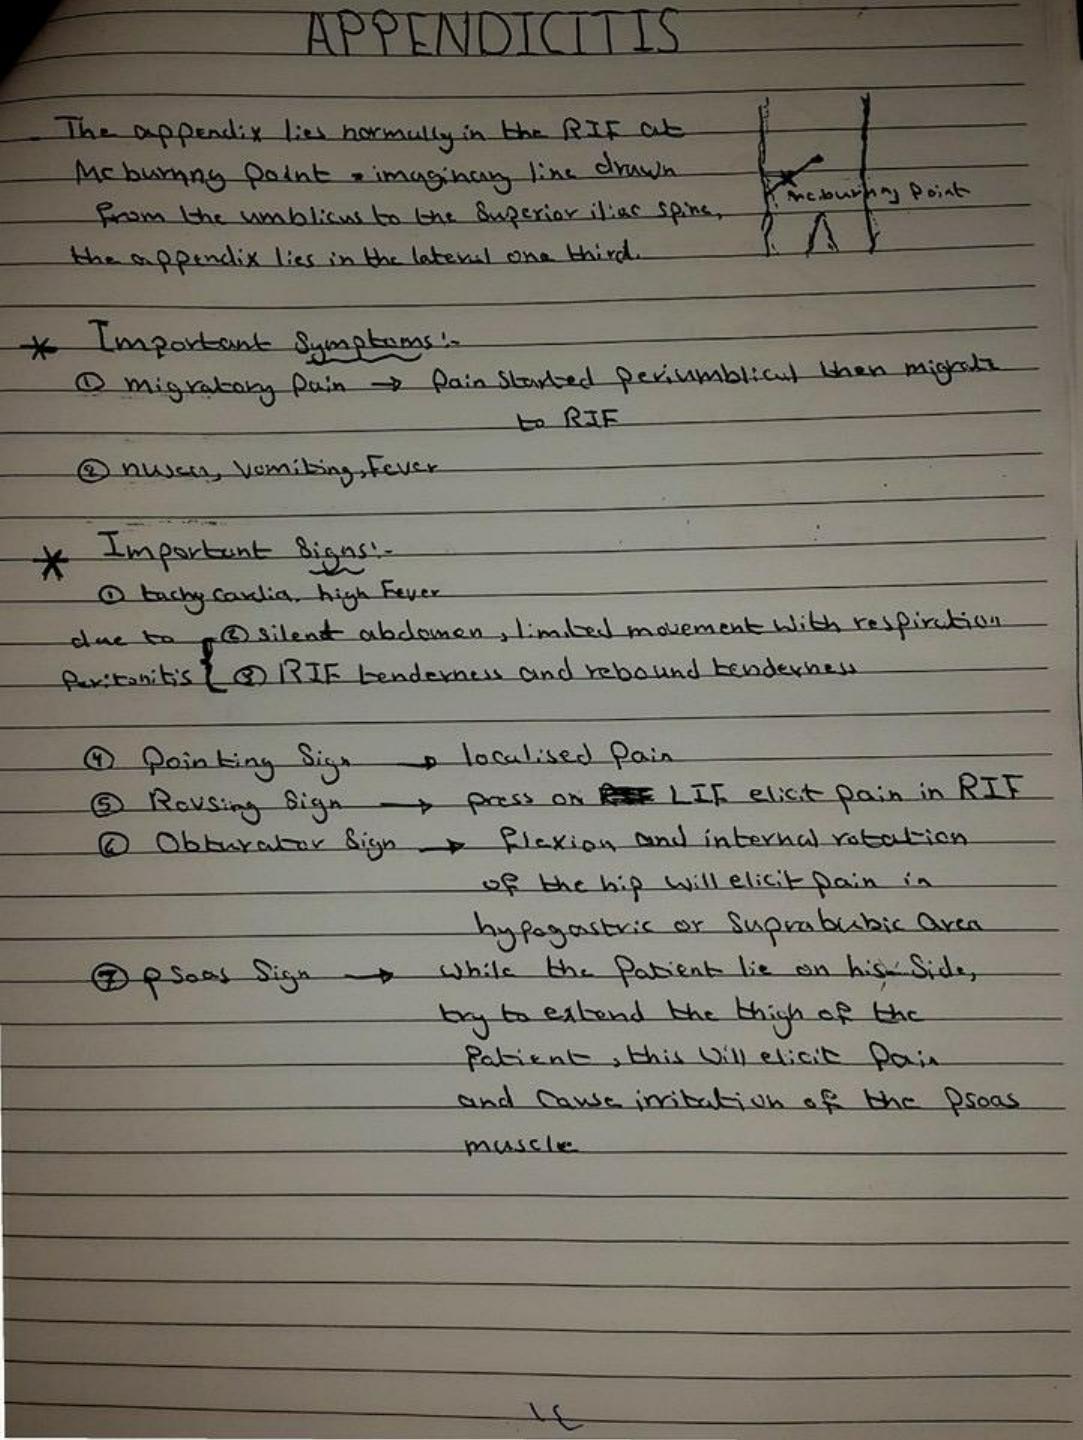 APPENDICITIS
The appendix lies normally in the RIF at
Mc burnny Point = imaginary line drawn
from the umblicus to the Superior iliac spine,
the appendix lies in the lateral one third.
Mc.burnny Point
* Important Symptoms:-
① migratory Pain → Pain Started periumblical then migrate
to RIF
② nusea, Vomiting, Fever
* Important Signs:-
① tachy cardia, high Fever
due to ② silent abdomen, limited movement with respiration
Peritonitis { ③ RIF tenderness and rebound tenderness
④ Pointing Sign → localised Pain
⑤ Rovsing Sign → press on LIF elicit pain in RIF
⑥ Obturator Sign → flexion and internal rotation
of the hip will elicit pain in
hypogastric or Suprabubic area
⑦ psoas Sign → while the Patient lie on his Side,
try to extend the thigh of the
Patient, this will elicit Pain
and cause irritation of the Psoas
muscle